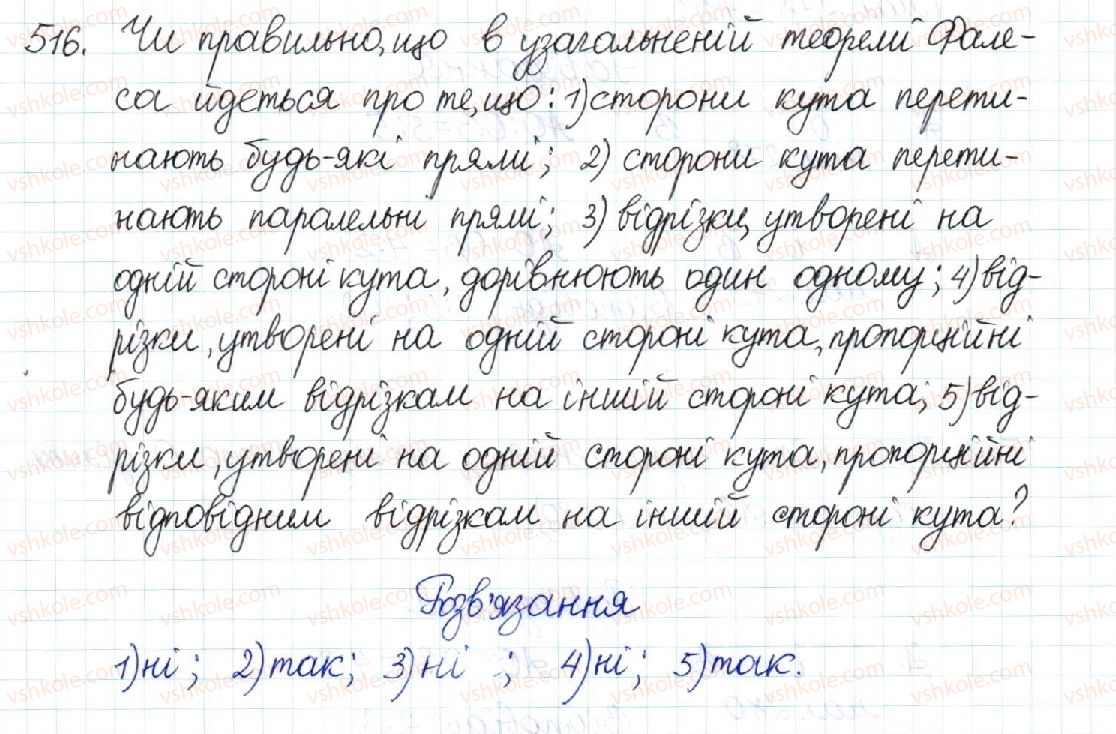 516. Чи правильно, що в узагальненій теоремі Фале-
са йдеться про те, що: 1) сторони кута перети-
нають будь-які прямі; 2) сторони кута перети-
нають паралельні прямі; 3) відрізки, утворені на
одній стороні кута, дорівнюють один одному; 4) від-
різки, утворені на одній стороні кута, пропорційні
будь-яким відрізкам на іншій стороні кута; 5) від-
різки, утворені на одній стороні кута, пропорційні
відповідним відрізкам на іншій стороні кута?
Розв'язання
1) ні; 2) так; 3) ні ; 4) ні; 5) так.